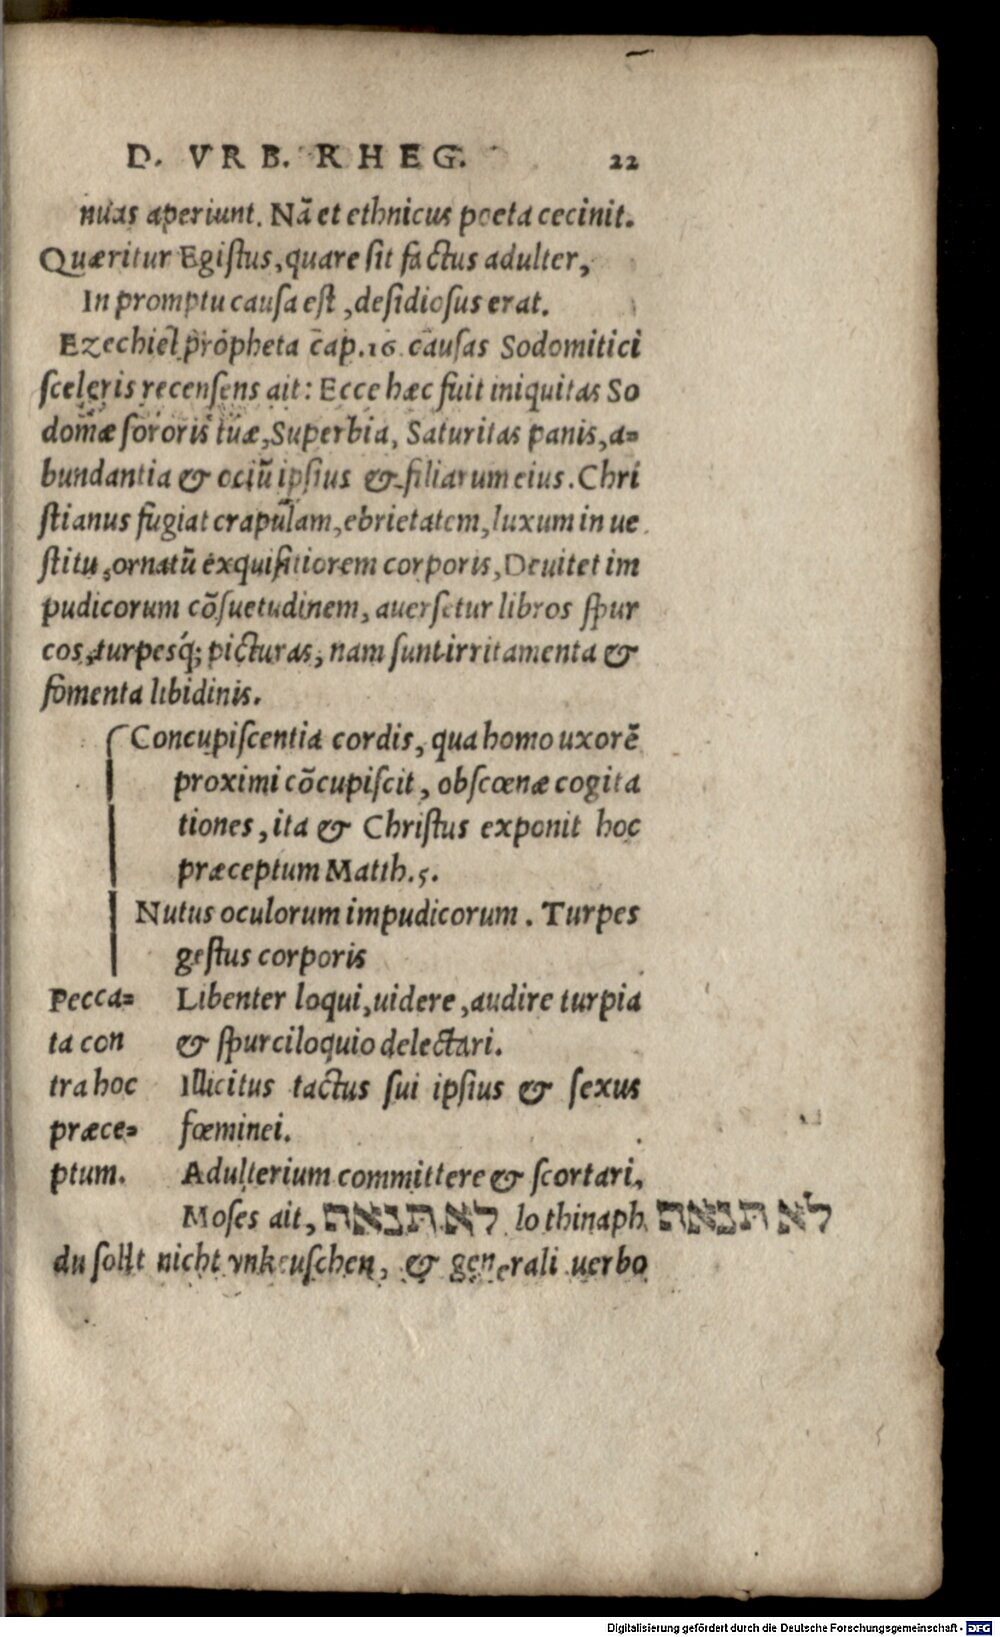 D. VRB. RHEG. 22
nuas aperiunt. Nā et ethnicus poeta cecinit.
Quæritur Egiſtus, quare ſit factus adulter,
In promptu cauſa eſt, deſidioſus erat.
Ezechiel propheta cap. 16. cauſas Sodomitici
ſceleris recenſens ait: Ecce hæc fuit iniquitas So
domæ ſororis tuæ, Superbia, Saturitas panis, a=
bundantia & ociū ipſius & filiarum eius. Chri
ſtianus fugiat crapulam, ebrietatem, luxum in ue
ſtitu, ornatū exquiſitiorem corporis, Deuitet im
pudicorum cōſuetudinem, auerſetur libros ſpur
cos, turpesq́; picturas, nam ſunt irritamenta &
fomenta libidinis.
Concupiſcentia cordis, qua homo uxorē
proximi cōcupiſcit, obſcœnæ cogita
tiones, ita & Chriſtus exponit hoc
præceptum Matth. 5.
Nutus oculorum impudicorum. Turpes
geſtus corporis
Pecca= Libenter loqui, uidere, audire turpia
ta con & ſpurciloquio delectari.
tra hoc Illicitus tactus ſui ipſius & ſexus
præce= fœminei.
ptum. Adulterium committere & ſcortari,
Moſes ait, לא תנאף lo thinaph לא תנאף
du ſollt nicht vnkeuſchen, & generali uerbo
Digitalisierung gefördert durch die Deutsche Forschungsgemeinschaft - DFG